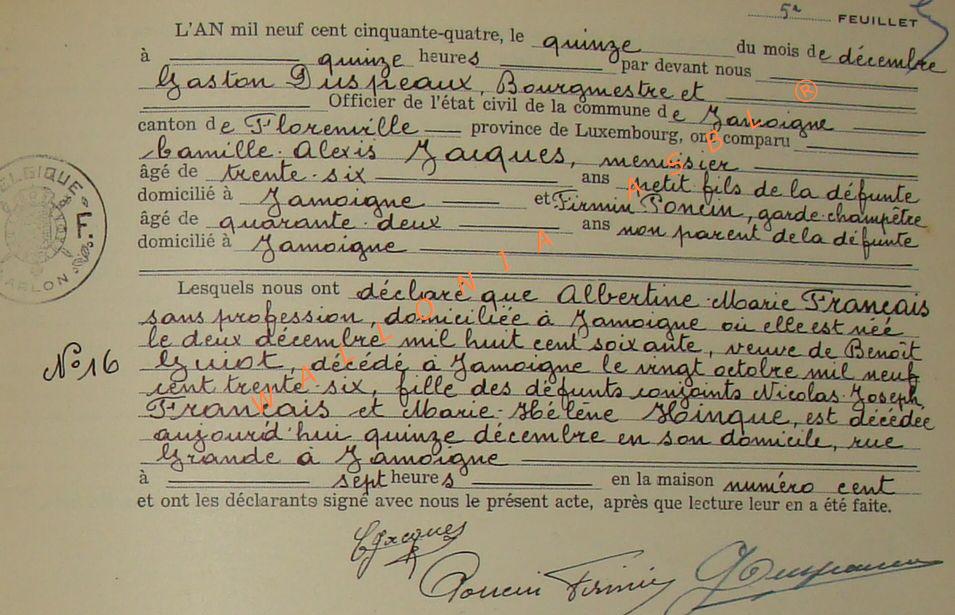 5e FEUILLET
L'AN mil neuf cent cinquante-quatre, le quinze du mois de décembre
à quinze heures par devant nous
Gaston Duspeaux, Bourgmestre et
Officier de l'état civil de la commune de Jamoigne
canton de Florenville province de Luxembourg, ont comparu
Camille-Alexis Jacques, menuisier
âgé de trente-six ans petit fils de la défunte
domicilié à Jamoigne et Firmin Poncin, garde-champêtre
âgé de quarante-deux ans non parent de la défunte
domicilié à Jamoigne
BELGIQUE
F.
ARLON
Lesquels nous ont déclaré que Albertine-Marie Français
sans profession, domiciliée à Jamoigne où elle est née
le deux décembre mil huit cent soixante, veuve de Benoît
No 16
Guiot, décédé à Jamoigne le vingt octobre mil neuf
cent trente-six, fille des défunts conjoints Nicolas-Joseph
Français et Marie-Hélène Hinque, est décédée
aujourd'hui quinze décembre en son domicile, rue
Grande à Jamoigne
à sept heures en la maison numéro cent
et ont les déclarants signé avec nous le présent acte, après que lecture leur en a été faite.
CJacques
Poncin Firmin
WALLONIA ASBL ®